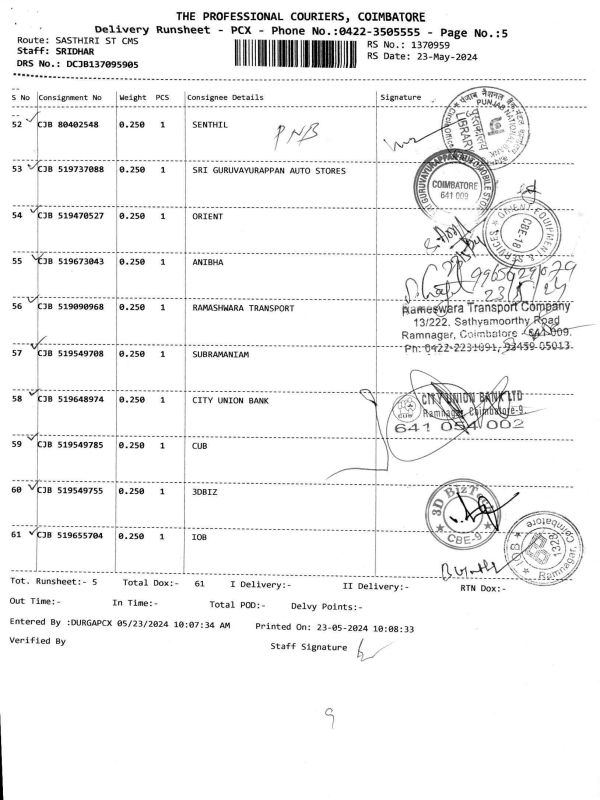 THE PROFESSIONAL COURIERS, COIMBATORE
Delivery Runsheet - PCX - Phone No.:0422-3505555 - Page No.:5
Route: SASTHIRI ST CMS
RS No.: 1370959
Staff: SRIDHAR
RS Date: 23-May-2024
DRS No.: DCJB137095905
S No Consignment No Weight PCS Consignee Details Signature
52 CJB 80402548 0.250 1 SENTHIL
PNB
53 CJB 519737088 0.250 1 SRI GURUVAYURAPPAN AUTO STORES
COIMBATORE
641 009
54 CJB 519470527 0.250 1 ORIENT
ORIENT EQUIPMENT & SERVICES
CBE-18
55 CJB 519673043 0.250 1 ANIBHA
23/5/24
56 CJB 519090968 0.250 1 RAMASHWARA TRANSPORT
Rameswara Transport Company
13/222, Sathyamoorthy Road
Ramnagar, Coimbatore - 641-009.
Ph: 0422-2231091, 93459 05013.
57 CJB 519549708 0.250 1 SUBRAMANIAM
58 CJB 519648974 0.250 1 CITY UNION BANK
CITY UNION BANK LTD
Ramnagar, Coimbatore-9.
641 054 002
59 CJB 519549785 0.250 1 CUB
60 CJB 519549755 0.250 1 3DBIZ
CBE-9
61 CJB 519655704 0.250 1 IOB
IOB
1328
Ramnagar, Coimbatore
Tot. Runsheet:- 5 Total Dox:- 61 I Delivery:- II Delivery:- RTN Dox:-
Out Time:- In Time:- Total POD:- Delvy Points:-
Entered By :DURGAPCX 05/23/2024 10:07:34 AM Printed On: 23-05-2024 10:08:33
Verified By Staff Signature
9